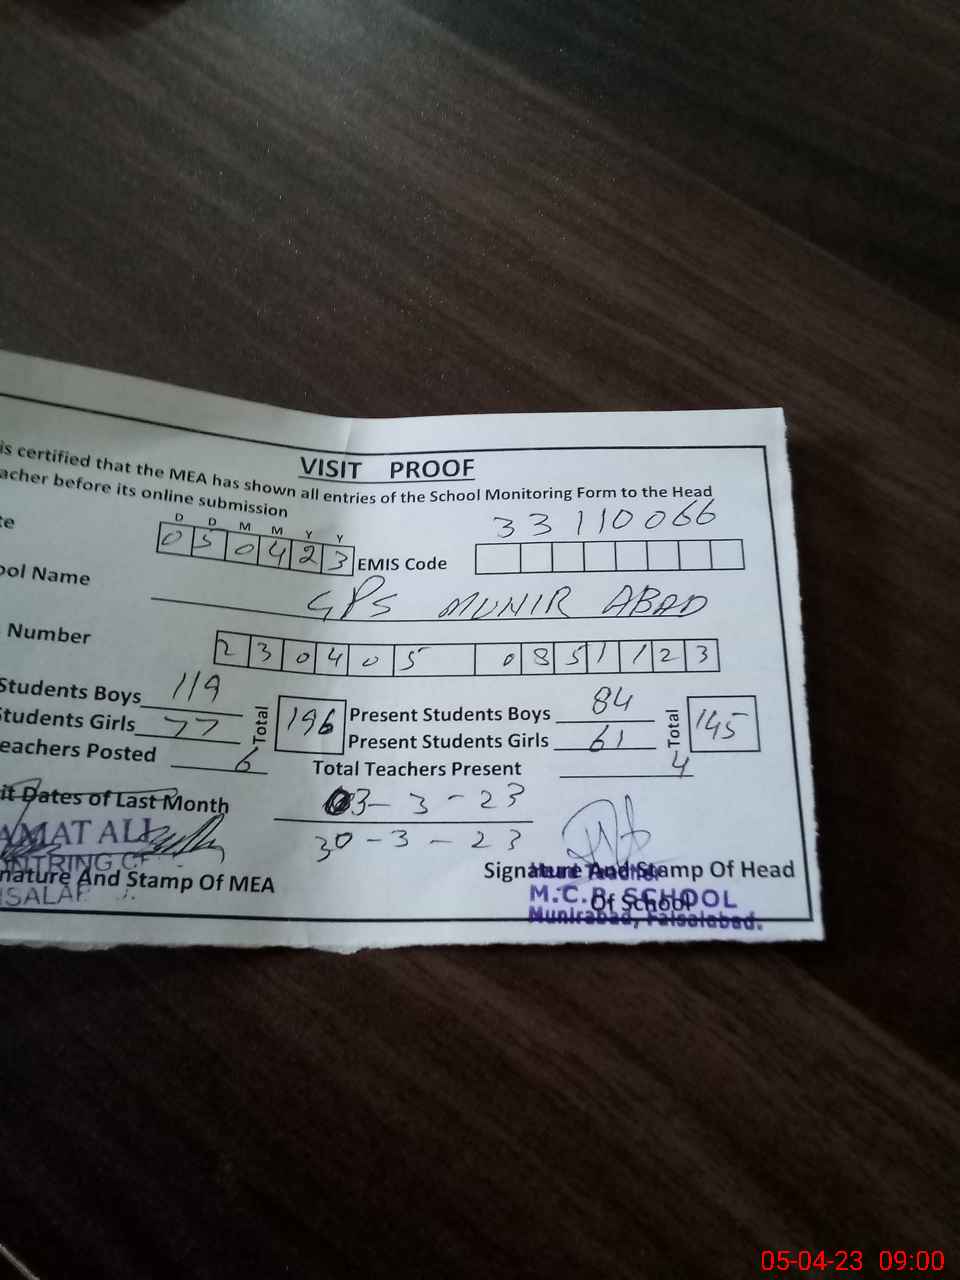 VISIT PROOF
is certified that the MEA has shown all entries of the School Monitoring Form to the Head
acher before its online submission
D D M M Y Y
te 0 5 0 4 2 3 EMIS Code 33110066
ool Name GPS MUNIR ABAD
Number 2 3 0 4 0 5 0 8 5 1 1 2 3
Students Boys 119 Total 196 Present Students Boys 84 Total 145
Students Girls 77 Present Students Girls 61
eachers Posted 6 Total Teachers Present 4
it Dates of Last Month 03-3-23
30-3-23
AMAT ALI
nature And Stamp Of MEA Signature And Stamp Of Head
Of School
M.C.B. SCHOOL
Munirabad, Faisalabad.
05-04-23 09:00